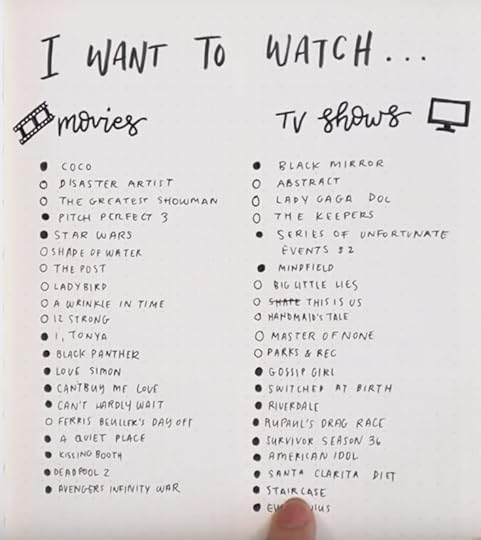 I WANT TO WATCH...
movies
COCO
DISASTER ARTIST
THE GREATEST SHOWMAN
PITCH PERFECT 3
STAR WARS
SHAPE OF WATER
THE POST
LADYBIRD
A WRINKLE IN TIME
12 STRONG
I, TONYA
BLACK PANTHER
LOVE SIMON
CAN'T BUY ME LOVE
CAN'T HARDLY WAIT
FERRIS BEULLER'S DAY OFF
A QUIET PLACE
KISSING BOOTH
DEADPOOL 2
AVENGERS INFINITY WAR
TV shows
BLACK MIRROR
ABSTRACT
LADY GAGA DOC
THE KEEPERS
SERIES OF UNFORTUNATE
EVENTS S2
MINDFIELD
BIG LITTLE LIES
THIS IS US
HANDMAID'S TALE
MASTER OF NONE
PARKS & REC
GOSSIP GIRL
SWITCHED AT BIRTH
RIVERDALE
RUPAUL'S DRAG RACE
SURVIVOR SEASON 36
AMERICAN IDOL
SANTA CLARITA DIET
STAIRCASE